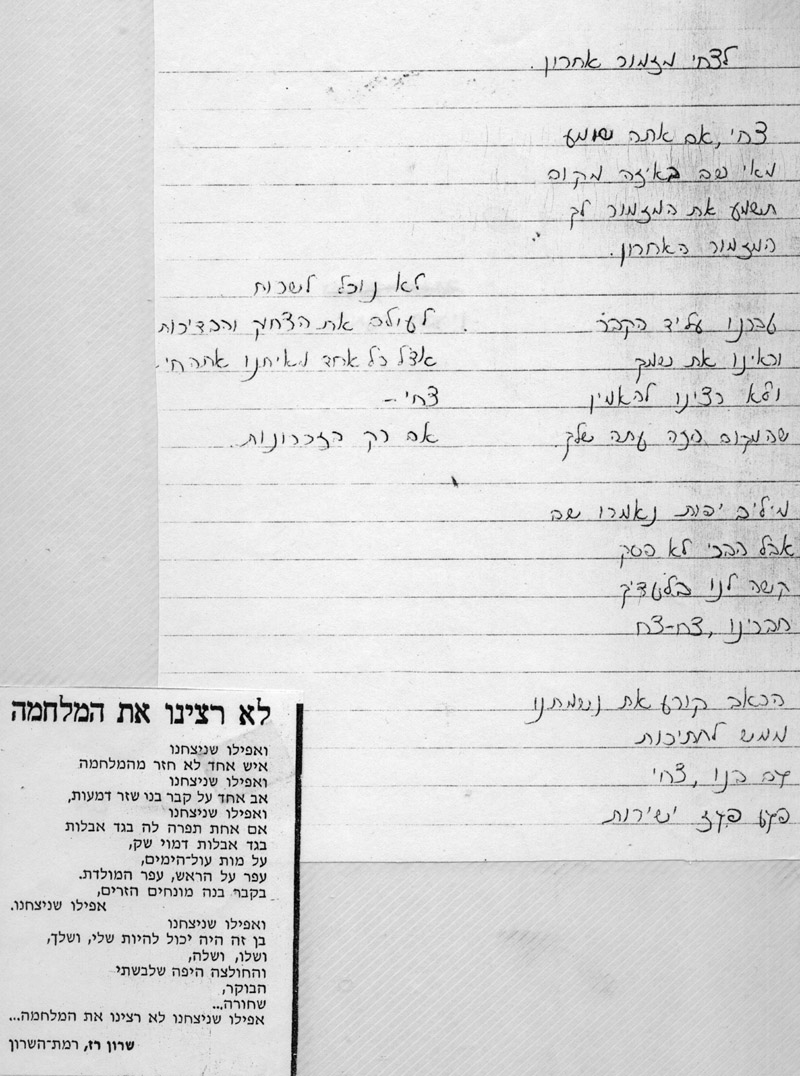 לצחי מזמור אחרון.
צחי, אם אתה שומע
מאי שם באיזה מקום
תשמע את המזמור לך
המזמור האחרון.
עברנו על יד הקבר
וראינו את שמך
ולא רצינו להאמין
שהמקום הזה עתה שלך.
מילים יפות נאמרו שם
אבל הבכי לא פסק
קשה לנו בלעדיך
חברינו, צח-צח
הכאב קורע את נשמתנו
ממש לחתיכות
גם בנו, צחי
פגע פגז ישירות
לא נוכל לשכוח
לעולם את הצחוק והבדיחות
אצל כל אחד מאיתנו אתה חי
צחי –
אם רק הזכרונות.
לא רצינו את המלחמה
ואפילו שניצחנו
איש אחד לא חזר מהמלחמה
ואפילו שניצחנו
אב אחד על קבר בנו שזר דמעות,
ואפילו שניצחנו
אם אחת תפרה לה בגד אבלות
בגד אבלות דמוי שק,
על מות עול־הימים,
עפר על הראש, עפר המולדת.
בקבר בנה מונחים הזרים,
אפילו שניצחנו.
ואפילו שניצחנו
בן זה היה יכול להיות שלי, ושלך,
ושלו, ושלה,
והחולצה היפה שלבשתי
הבוקר,
שחורה...
אפילו שניצחנו לא רצינו את המלחמה...
שרון רז, רמת־השרון